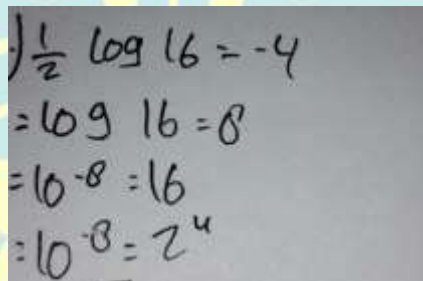 .) 1/2 log 16 = -4
= log 16 = 8
= 10^-8 = 16
= 10^-8 = 2^4